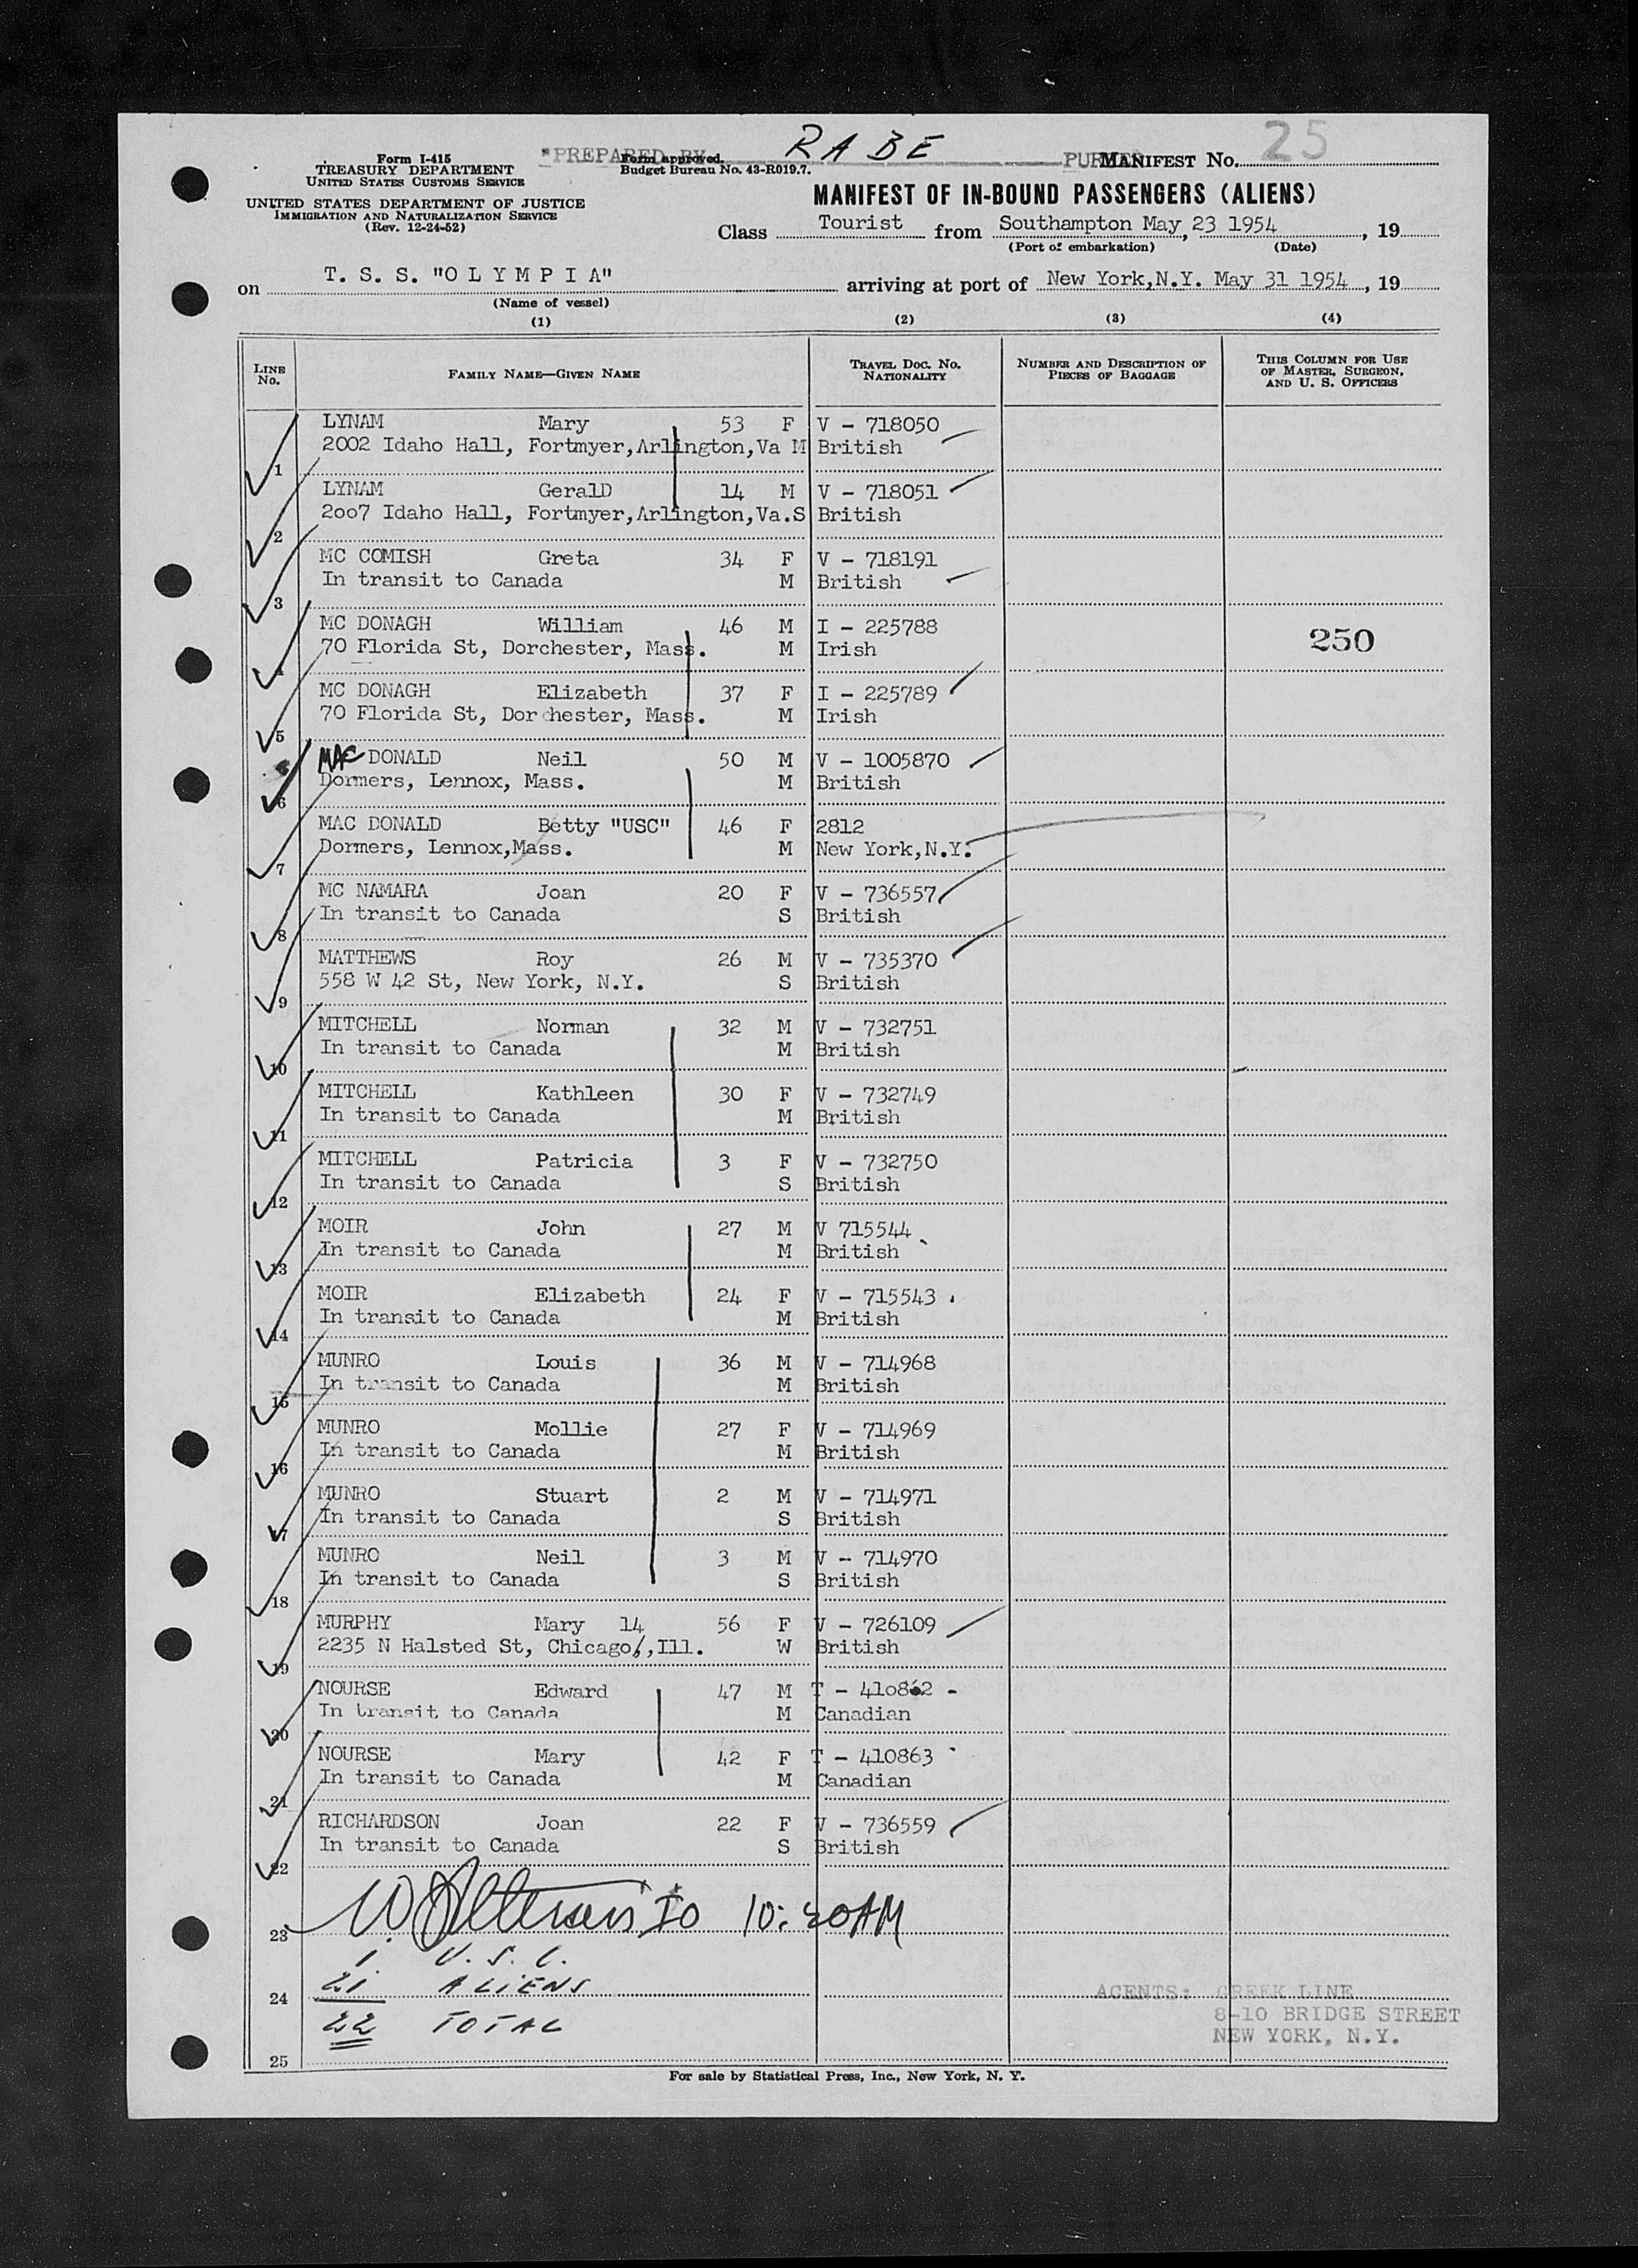 Form I-415
TREASURY DEPARTMENT
UNITED STATES CUSTOMS SERVICE
UNITED STATES DEPARTMENT OF JUSTICE
IMMIGRATION AND NATURALIZATION SERVICE
(Rev. 12-24-52)
PREPARED BY RABE
Form approved.
Budget Bureau No. 43-R019.7.
MANIFEST No. 25
MANIFEST OF IN-BOUND PASSENGERS (ALIENS)
Class Tourist from Southampton May, 23 1954, 19
(Port of embarkation) (Date)
on T. S. S. "O L Y M P I A" arriving at port of New York,N.Y. May 31 1954, 19
(Name of vessel)
(1) (2) (3) (4)
LINE No. FAMILY NAME—GIVEN NAME TRAVEL DOC. No. NATIONALITY NUMBER AND DESCRIPTION OF PIECES OF BAGGAGE THIS COLUMN FOR USE OF MASTER, SURGEON, AND U. S. OFFICERS
LYNAM Mary 53 F V - 718050
2002 Idaho Hall, Fortmyer,Arlington,Va M British
1
LYNAM GeralD 14 M V - 718051
2oo7 Idaho Hall, Fortmyer,Arlington,Va.S British
2
MC COMISH Greta 34 F V - 718191
In transit to Canada M British
3
MC DONAGH William 46 M I - 225788
70 Florida St, Dorchester, Mass. M Irish 250
4
MC DONAGH Elizabeth 37 F I - 225789
70 Florida St, Dorchester, Mass. M Irish
5
MAC DONALD Neil 50 M V - 1005870
Dormers, Lennox, Mass. M British
6
MAC DONALD Betty "USC" 46 F 2812
Dormers, Lennox,Mass. M New York,N.Y.
7
MC NAMARA Joan 20 F V - 736557
In transit to Canada S British
8
MATTHEWS Roy 26 M V - 735370
558 W 42 St, New York, N.Y. S British
9
MITCHELL Norman 32 M V - 732751
In transit to Canada M British
10
MITCHELL Kathleen 30 F V - 732749
In transit to Canada M British
11
MITCHELL Patricia 3 F V - 732750
In transit to Canada S British
12
MOIR John 27 M V 715544
In transit to Canada M British
13
MOIR Elizabeth 24 F V - 715543
In transit to Canada M British
14
MUNRO Louis 36 M V - 714968
In transit to Canada M British
15
MUNRO Mollie 27 F V - 714969
In transit to Canada M British
16
MUNRO Stuart 2 M V - 714971
In transit to Canada S British
17
MUNRO Neil 3 M V - 714970
In transit to Canada S British
18
MURPHY Mary 14 56 F V - 726109
2235 N Halsted St, Chicago,,Ill. W British
19
NOURSE Edward 47 M T - 41o862 -
In transit to Canada M Canadian
20
NOURSE Mary 42 F T - 410863
In transit to Canada M Canadian
21
RICHARDSON Joan 22 F V - 736559
In transit to Canada S British
22
IO 10:20AM
23
1 U.S.C.
21 ALIENS
24
22 TOTAL
25
AGENTS: GREEK LINE
8-10 BRIDGE STREET
NEW YORK, N.Y.
For sale by Statistical Press, Inc., New York, N. Y.